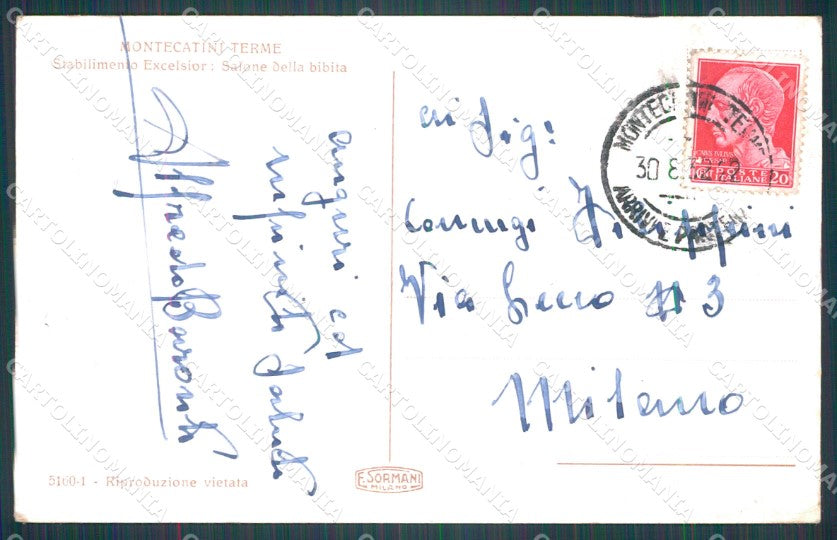 MONTECATINI TERME
Stabilimento Excelsior: Salone della bibita
auguri ed
infiniti saluti
Alfredo
5160-1 - Riproduzione vietata
F. SORMANI
MILANO
MONTECATINI TERME
30 8
ARRIVI E PARTENZE
CAIVS IVLIVS
CAESAR
POSTE
ITALIANE
20
Sig:
Coniugi
Via Lecco N 3
Milano
CARTOLINOMANIA